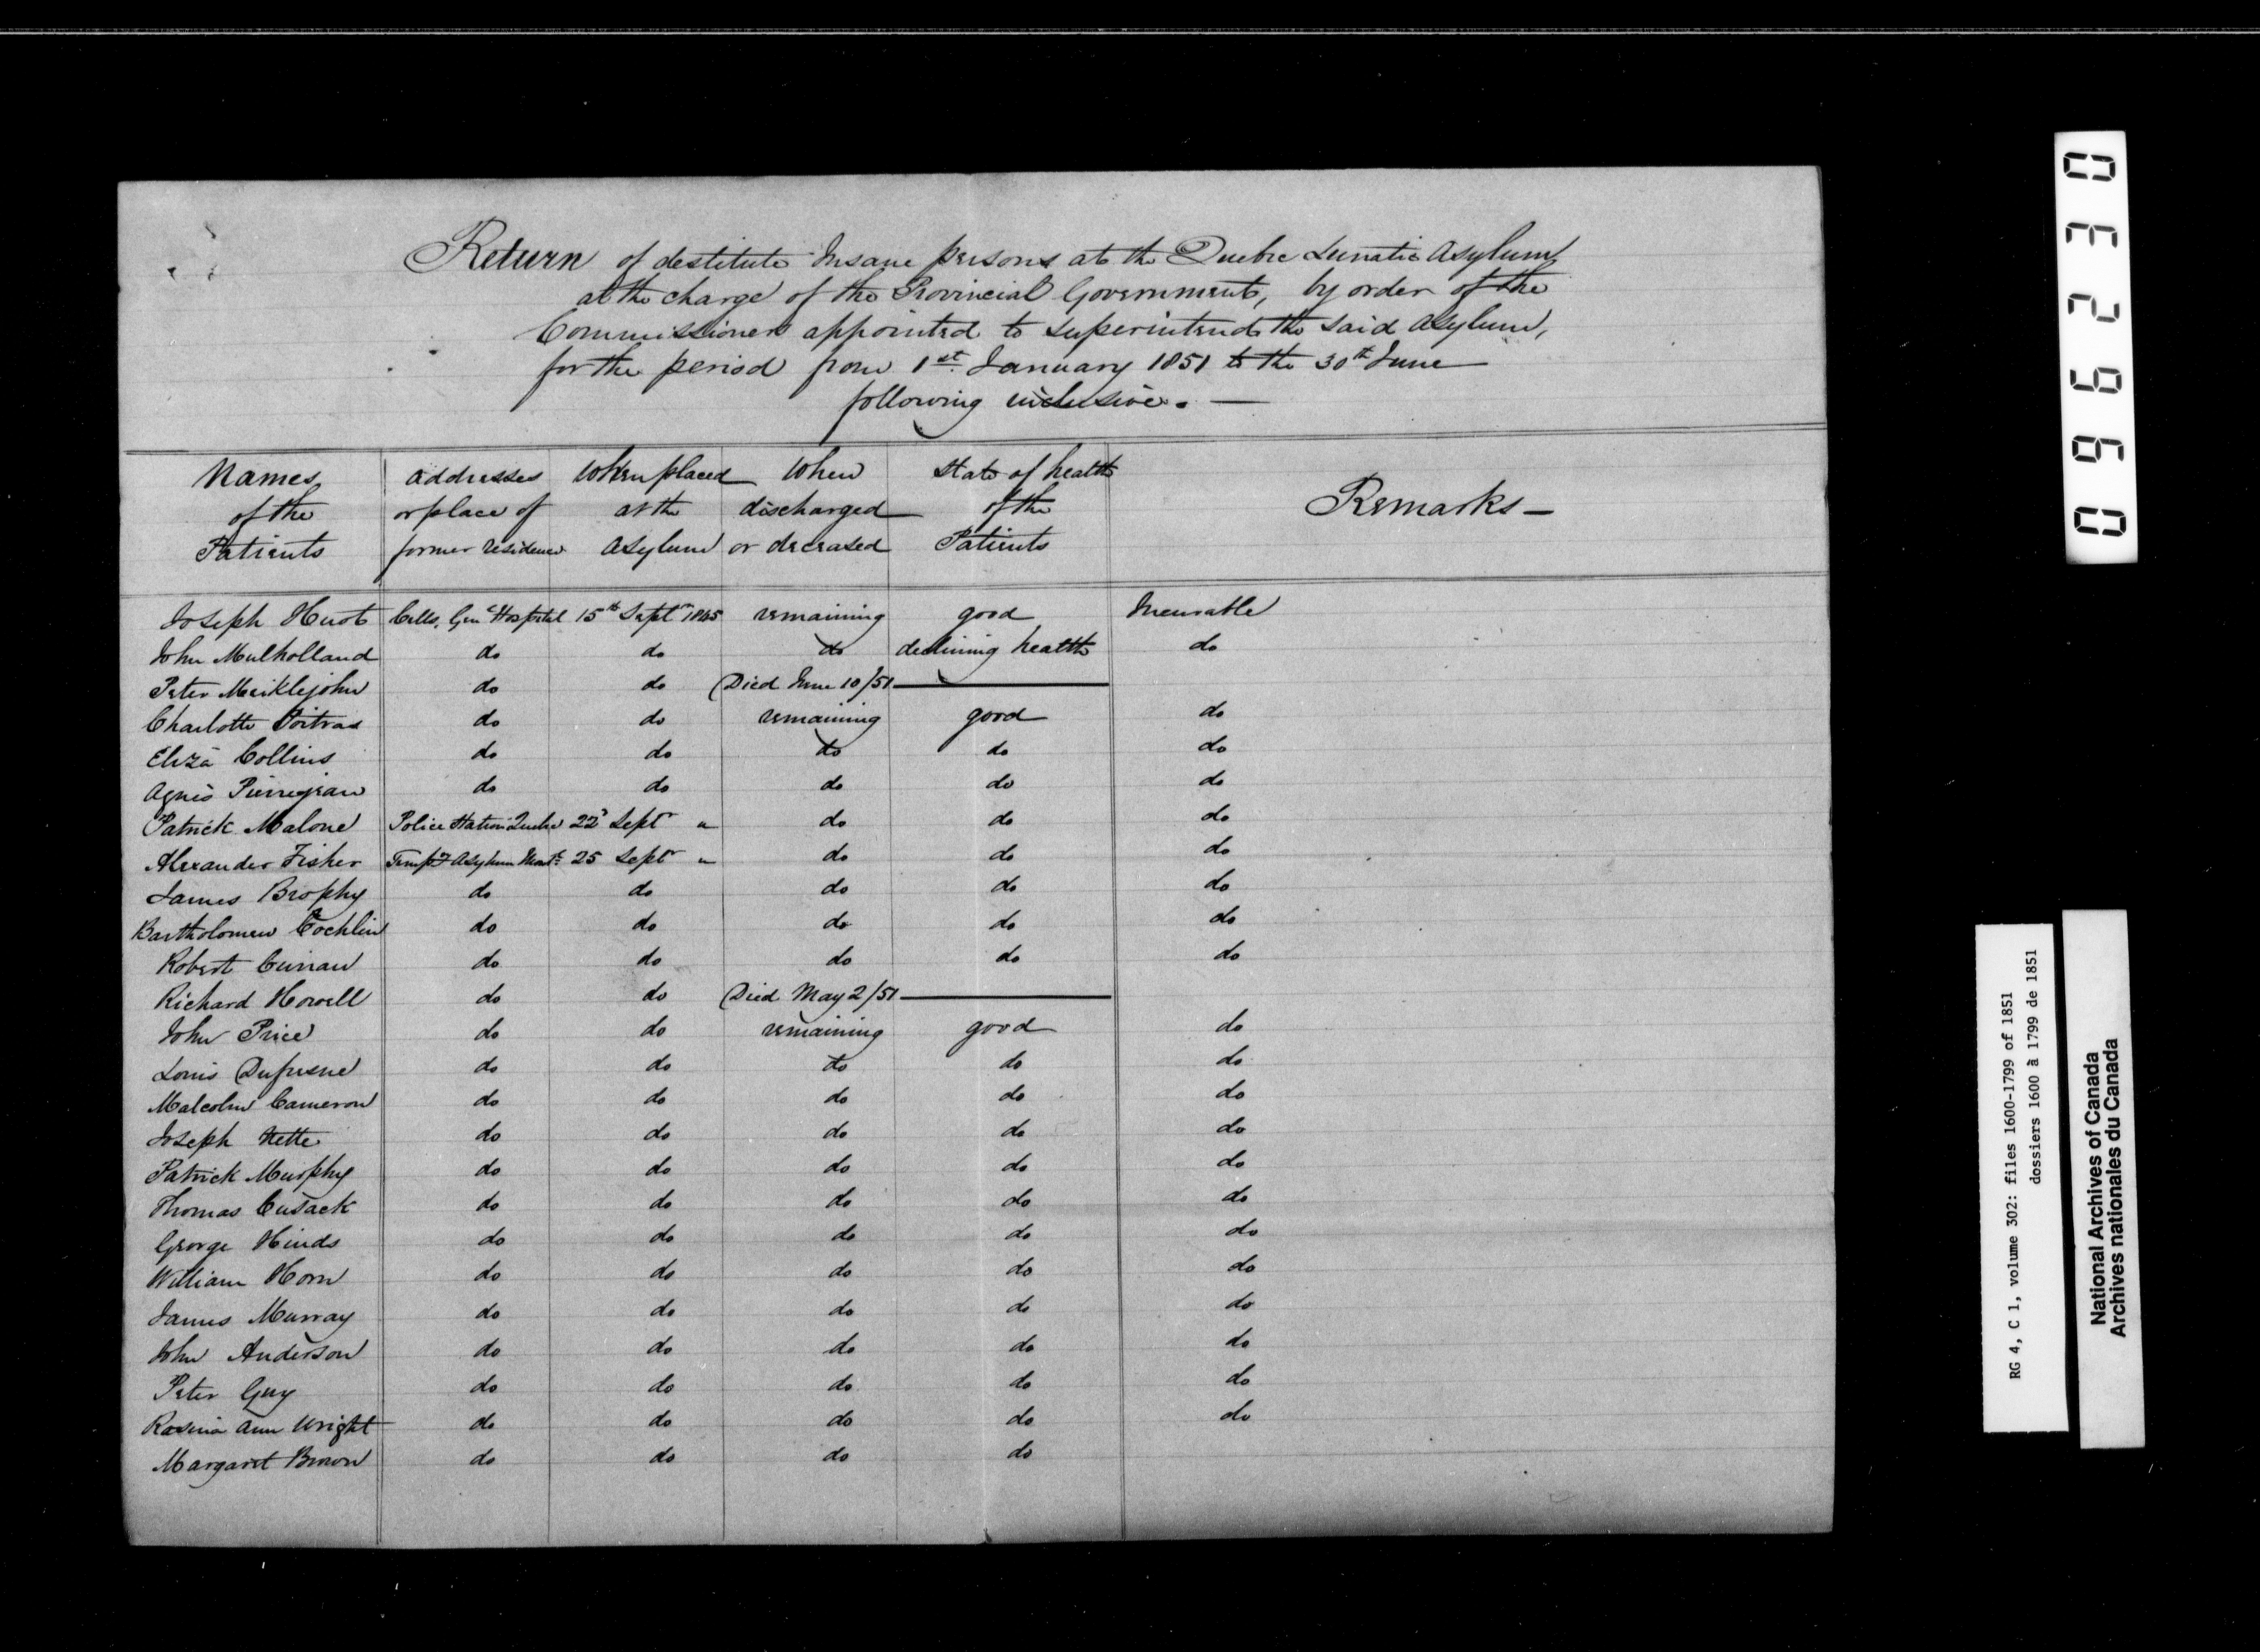 Return of destitute Insane persons at the Quebec Lunatic Asylum
at the charge of the Provincial Government, by order of the
Commissioners appointed to superintend the said Asylum,
for the period from 1st January 1851 to the 30th June
following inclusive. —
Names of the Patients | Addresses or place of former residence | When placed at the Asylum | When discharged or deceased | State of health of the Patients | Remarks —
Joseph Huot Cells, Genl Hospital 15th Septr 1845 remaining good Incurable
John Mulholland do do do declining health do
Peter Meiklejohn do do Died June 10/51 ———
Charlotte Poitras do do remaining good do
Eliza Collins do do do do do
Agnès Pierrejean do do do do do
Patrick Malone Police Station Quebec 22d Septr " do do do
Alexander Fisher Tempy Asylum Montl 25 Septr " do do do
James Brophy do do do do do
Bartholomew Cochlin do do do do do
Robert do do do do do
Richard Howell do do Died May 2/51 ———
John Price do do remaining good do
Louis Dufresne do do do do do
Malcolm Cameron do do do do do
Joseph Nette do do do do do
Patrick Murphy do do do do do
Thomas Cusack do do do do do
George Hinds do do do do do
William Horn do do do do do
James Murray do do do do do
John Anderson do do do do do
Peter Guy do do do do do
Rosina Ann Wright do do do do do
Margaret Brown do do do do
096230
RG 4, C 1, volume 302: files 1600-1799 of 1851
dossiers 1600 à 1799 de 1851
National Archives of Canada
Archives nationales du Canada